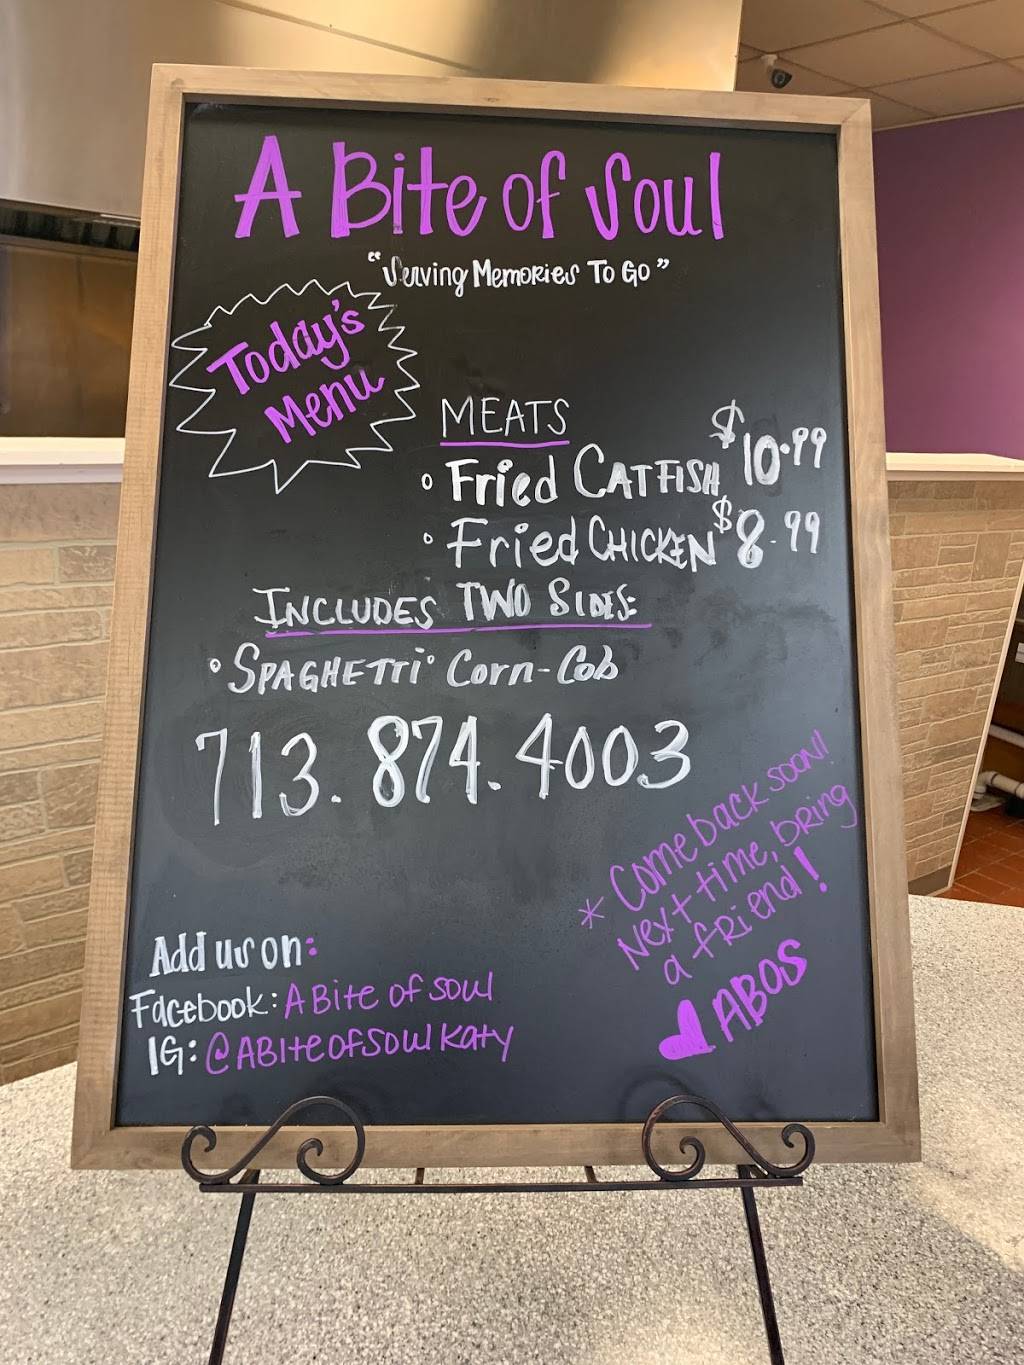 A Bite of Soul
"Serving Memories To Go"
Today's
Menu
MEATS
◦ Fried CATFISH $10.99
◦ Fried CHICKEN $8.99
INCLUDES TWO SIDES:
◦ SPAGHETTI ◦ Corn-Cob
713.874.4003
* Come back soon!
Next time, bring
a friend!
ABOS
Add us on:
Facebook: A Bite of soul
IG: @ABiteofsoulkaty